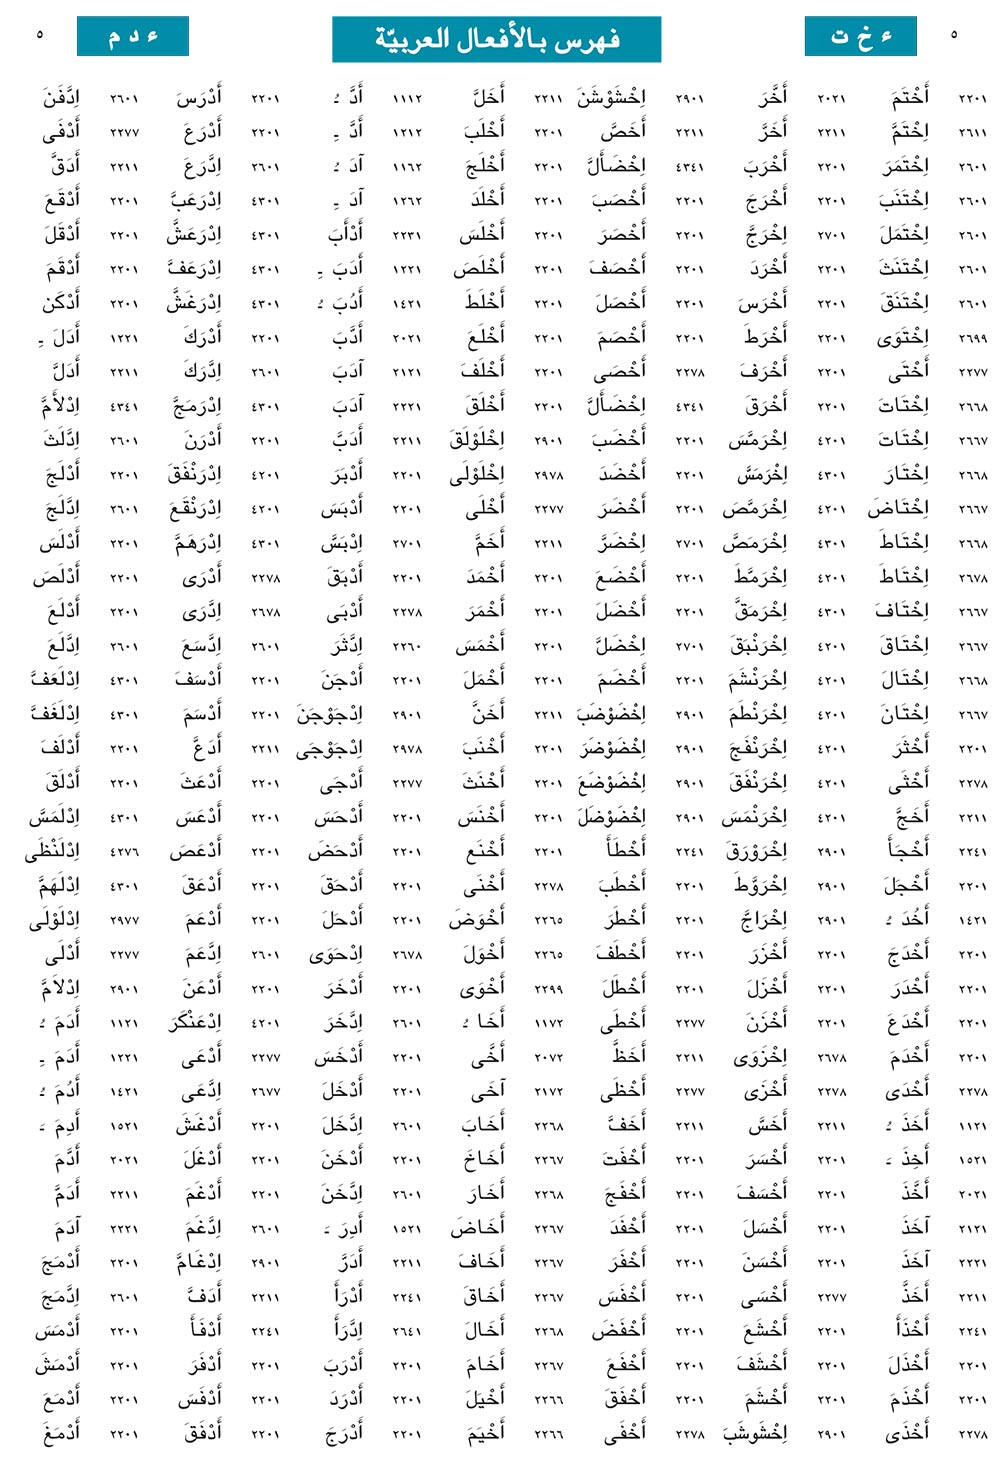 ٥ ء خ ت فهرس بالأفعال العربيّة ء د م ٥
٢٢٠١ أَخْتَمَ ٢٠٢١ أَخَّرَ ٢٩٠١ اِخْشَوْشَنَ ٢٢١١ أَخَلَّ ١١١٢ أَدَّ ـُ ٢٢٠١ أَدْرَسَ ٢٦٠١ اِدَّفَنَ
٢٦١١ اِخْتَمَّ ٢٢١١ أَخَرَّ ٢٢١١ أَخَصَّ ٢٢٠١ أَخْلَبَ ١٢١٢ أَدَّ ـِ ٢٢٠١ أَدْرَعَ ٢٢٧٧ أَدْفَى
٢٦٠١ اِخْتَمَرَ ٢٢٠١ أَخْرَبَ ٤٣٤١ اِخْضَأَلَّ ٢٢٠١ أَخْلَجَ ١١٦٢ آدَ ـُ ٢٦٠١ اِدَّرَعَ ٢٢١١ أَدَقَّ
٢٦٠١ اِخْتَنَبَ ٢٢٠١ أَخْرَجَ ٢٢٠١ أَخْصَبَ ٢٢٠١ أَخْلَدَ ١٢٦٢ آدَ ـِ ٤٣٠١ اِدْرَعَبَّ ٢٢٠١ أَدْقَعَ
٢٦٠١ اِخْتَمَلَ ٢٧٠١ اِخْرَجَّ ٢٢٠١ أَخْصَرَ ٢٢٠١ أَخْلَسَ ٢٢٣١ أَدْأَبَ ٤٣٠١ اِدْرَعَشَّ ٢٢٠١ أَدْقَلَ
٢٦٠١ اِخْتَنَثَ ٢٢٠١ أَخْرَدَ ٢٢٠١ أَخْصَفَ ٢٢٠١ أَخْلَصَ ١٢٢١ أَدَبَ ـِ ٤٣٠١ اِدْرَعَفَّ ٢٢٠١ أَدْقَمَ
٢٦٠١ اِخْتَنَقَ ٢٢٠١ أَخْرَسَ ٢٢٠١ أَخْصَلَ ٢٢٠١ أَخْلَطَ ١٤٢١ أَدُبَ ـُ ٤٣٠١ اِدْرَغَشَّ ٢٢٠١ أَدْكَنَ
٢٦٩٩ اِخْتَوَى ٢٢٠١ أَخْرَطَ ٢٢٠١ أَخْصَمَ ٢٢٠١ أَخْلَعَ ٢٠٢١ أَدَّبَ ٢٢٠١ أَدْرَكَ ١٢٢١ أَدَلَ ـِ
٢٢٧٧ أَخْتَى ٢٢٠١ أَخْرَفَ ٢٢٧٨ أَخْصَى ٢٢٠١ أَخْلَفَ ٢١٢١ آدَبَ ٢٦٠١ اِدَّرَكَ ٢٢١١ أَدَلَّ
٢٦٦٨ اِخْتَاتَ ٢٢٠١ أَخْرَقَ ٤٣٤١ اِخْضَأَلَّ ٢٢٠١ أَخْلَقَ ٢٢٢١ آدَبَ ٤٣٠١ اِدْرَمَجَّ ٤٣٤١ اِدْلَأَمَّ
٢٦٦٧ اِخْتَاتَ ٤٢٠١ اِخْرَمَّسَ ٢٢٠١ أَخْضَبَ ٢٩٠١ اِخْلَوْلَقَ ٢٢١١ أَدَبَّ ٢٢٠١ أَدْرَنَ ٢٦٠١ اِدَّلَثَ
٢٦٦٨ اِخْتَارَ ٤٣٠١ اِخْرَمَسَّ ٢٢٠١ أَخْضَدَ ٢٩٧٨ اِخْلَوْلَى ٢٢٠١ أَدْبَرَ ٤٢٠١ اِدْرَنْفَقَ ٢٢٠١ أَدْلَجَ
٢٦٦٧ اِخْتَاضَ ٤٢٠١ اِخْرَمَّصَ ٢٢٠١ أَخْضَرَ ٢٢٧٧ أَخْلَى ٢٢٠١ أَدْبَسَ ٤٢٠١ اِدْرَنْقَعَ ٢٦٠١ اِدَّلَجَ
٢٦٦٨ اِخْتَاطَ ٤٣٠١ اِخْرَمَصَّ ٢٧٠١ اِخْضَرَّ ٢٢١١ أَخَمَّ ٢٧٠١ اِدْبَسَّ ٤٣٠١ اِدْرَهَمَّ ٢٢٠١ أَدْلَسَ
٢٦٧٨ اِخْتَاطَ ٤٢٠١ اِخْرَمَّطَ ٢٢٠١ أَخْضَعَ ٢٢٠١ أَخْمَدَ ٢٢٠١ أَدْبَقَ ٢٢٧٨ أَدْرَى ٢٢٠١ أَدْلَصَ
٢٦٦٧ اِخْتَافَ ٤٣٠١ اِخْرَمَقَّ ٢٢٠١ أَخْضَلَ ٢٢٠١ أَخْمَرَ ٢٢٧٨ أَدْبَى ٢٦٧٨ اِدَّرَى ٢٢٠١ أَدْلَعَ
٢٦٦٧ اِخْتَاقَ ٤٢٠١ اِخْرَنْبَقَ ٢٧٠١ اِخْضَلَّ ٢٢٠١ أَخْمَسَ ٢٢٦٠ اِدَّثَرَ ٢٦٠١ اِدَّسَعَ ٢٦٠١ اِدَّلَعَ
٢٦٦٨ اِخْتَالَ ٤٢٠١ اِخْرَنْشَمَ ٢٢٠١ أَخْضَمَ ٢٢٠١ أَخْمَلَ ٢٢٠١ أَدْجَنَ ٢٢٠١ أَدْسَفَ ٤٣٠١ اِدْلَعَفَّ
٢٦٦٧ اِخْتَانَ ٤٢٠١ اِخْرَنْطَمَ ٢٩٠١ اِخْضَوْضَبَ ٢٢١١ أَخَنَّ ٢٩٠١ اِدْجَوْجَنَ ٢٢٠١ أَدْسَمَ ٤٣٠١ اِدْلَغَفَّ
٢٢٠١ أَخْثَرَ ٤٢٠١ اِخْرَنْفَجَ ٢٩٠١ اِخْضَوْضَرَ ٢٢٠١ أَخْنَبَ ٢٩٧٨ اِدْجَوْجَى ٢٢١١ أَدَعَّ ٢٢٠١ أَدْلَفَ
٢٢٧٨ أَخْثَى ٤٢٠١ اِخْرَنْفَقَ ٢٩٠١ اِخْضَوْضَعَ ٢٢٠١ أَخْنَثَ ٢٢٧٧ أَدْجَى ٢٢٠١ أَدْعَثَ ٢٢٠١ أَدْلَقَ
٢٢١١ أَخَجَّ ٤٢٠١ اِخْرَنْمَسَ ٢٩٠١ اِخْضَوْضَلَ ٢٢٠١ أَخْنَسَ ٢٢٠١ أَدْحَسَ ٢٢٠١ أَدْعَسَ ٤٣٠١ اِدْلَمَسَّ
٢٢٤١ أَخْجَأَ ٢٩٠١ اِخْرَوْرَقَ ٢٢٤١ أَخْطَأَ ٢٢٠١ أَخْنَعَ ٢٢٠١ أَدْحَضَ ٢٢٠١ أَدْعَصَ ٤٢٧٦ اِدْلَنْظَى
٢٢٠١ أَخْجَلَ ٢٩٠١ اِخْرَوَّطَ ٢٢٠١ أَخْطَبَ ٢٢٧٨ أَخْنَى ٢٢٠١ أَدْحَقَ ٢٢٠١ أَدْعَقَ ٤٣٠١ اِدْلَهَمَّ
١٤٢١ أَخُدَ ـُ ٢٩٠١ اِخْرَاجَّ ٢٢٠١ أَخْطَرَ ٢٢٦٥ أَخْوَضَ ٢٢٠١ أَدْحَلَ ٢٢٠١ أَدْعَمَ ٢٩٧٧ اِدْلَوْلَى
٢٢٠١ أَخْدَجَ ٢٢٠١ أَخْزَرَ ٢٢٠١ أَخْطَفَ ٢٢٦٥ أَخْوَلَ ٢٦٧٨ اِدْحَوَى ٢٦٠١ اِدَّعَمَ ٢٢٧٧ أَدْلَى
٢٢٠١ أَخْدَرَ ٢٢٠١ أَخْزَلَ ٢٢٠١ أَخْطَلَ ٢٢٩٩ أَخْوَى ٢٢٠١ أَدْخَرَ ٢٢٠١ أَدْعَنَ ٢٩٠١ اِدْلَامَّ
٢٢٠١ أَخْدَعَ ٢٢٠١ أَخْزَنَ ٢٢٧٧ أَخْطَى ١١٧٢ أَخَا ـُ ٢٦٠١ اِدَّخَرَ ٤٢٠١ اِدْعَنْكَرَ ١١٢١ أَدَمَ ـُ
٢٢٠١ أَخْدَمَ ٢٦٧٨ اِخْزَوَى ٢٢١١ أَخَظَّ ٢٠٧٢ أَخَّى ٢٢٠١ أَدْخَسَ ٢٢٧٧ أَدْعَى ١٢٢١ أَدَمَ ـِ
٢٢٧٨ أَخْدَى ٢٢٧٨ أَخْزَى ٢٢٧٧ أَخْظَى ٢١٧٢ آخَى ٢٢٠١ أَدْخَلَ ٢٦٧٧ اِدَّعَى ١٤٢١ أَدُمَ ـُ
١١٢١ أَخَذَ ـُ ٢٢١١ أَخَسَّ ٢٢١١ أَخَفَّ ٢٢٦٨ أَخَابَ ٢٦٠١ اِدَّخَلَ ٢٢٠١ أَدْغَشَ ١٥٢١ أَدِمَ ـَ
١٥٢١ أَخِذَ ـَ ٢٢٠١ أَخْسَرَ ٢٢٠١ أَخْفَتَ ٢٢٦٧ أَخَاخَ ٢٢٠١ أَدْخَنَ ٢٢٠١ أَدْغَلَ ٢٠٢١ أَدَّمَ
٢٠٢١ أَخَّذَ ٢٢٠١ أَخْسَفَ ٢٢٠١ أَخْفَجَ ٢٢٦٨ أَخَارَ ٢٦٠١ اِدَّخَنَ ٢٢٠١ أَدْغَمَ ٢٢١١ أَدَمَّ
٢١٢١ آخَذَ ٢٢٠١ أَخْسَلَ ٢٢٠١ أَخْفَدَ ٢٢٦٧ أَخَاضَ ١٥٢١ أَدِرَ ـَ ٢٦٠١ اِدَّغَمَ ٢٢٢١ آدَمَ
٢٢٢١ آخَذَ ٢٢٠١ أَخْسَنَ ٢٢٠١ أَخْفَرَ ٢٢٦٧ أَخَافَ ٢٢١١ أَدَرَّ ٢٩٠١ اِدْغَامَّ ٢٢٠١ أَدْمَجَ
٢٢١١ أَخَذَّ ٢٢٧٧ أَخْسَى ٢٢٠١ أَخْفَسَ ٢٢٦٧ أَخَاقَ ٢٢٤١ أَدْرَأَ ٢٢١١ أَدَفَّ ٢٦٠١ اِدَّمَجَ
٢٢٤١ أَخْذَأَ ٢٢٠١ أَخْشَعَ ٢٢٠١ أَخْفَضَ ٢٢٦٨ أَخَالَ ٢٦٤١ اِدَّرَأَ ٢٢٤١ أَدْفَأَ ٢٢٠١ أَدْمَسَ
٢٢٠١ أَخْذَلَ ٢٢٠١ أَخْشَفَ ٢٢٠١ أَخْفَعَ ٢٢٦٧ أَخَامَ ٢٢٠١ أَدْرَبَ ٢٢٠١ أَدْفَرَ ٢٢٠١ أَدْمَشَ
٢٢٠١ أَخْذَمَ ٢٢٠١ أَخْشَمَ ٢٢٠١ أَخْفَقَ ٢٢٦٦ أَخْيَلَ ٢٢٠١ أَدْرَدَ ٢٢٠١ أَدْفَسَ ٢٢٠١ أَدْمَعَ
٢٢٧٨ أَخْذَى ٢٩٠١ اِخْشَوْشَبَ ٢٢٧٨ أَخْفَى ٢٢٦٦ أَخْيَمَ ٢٢٠١ أَدْرَجَ ٢٢٠١ أَدْفَقَ ٢٢٠١ أَدْمَغَ